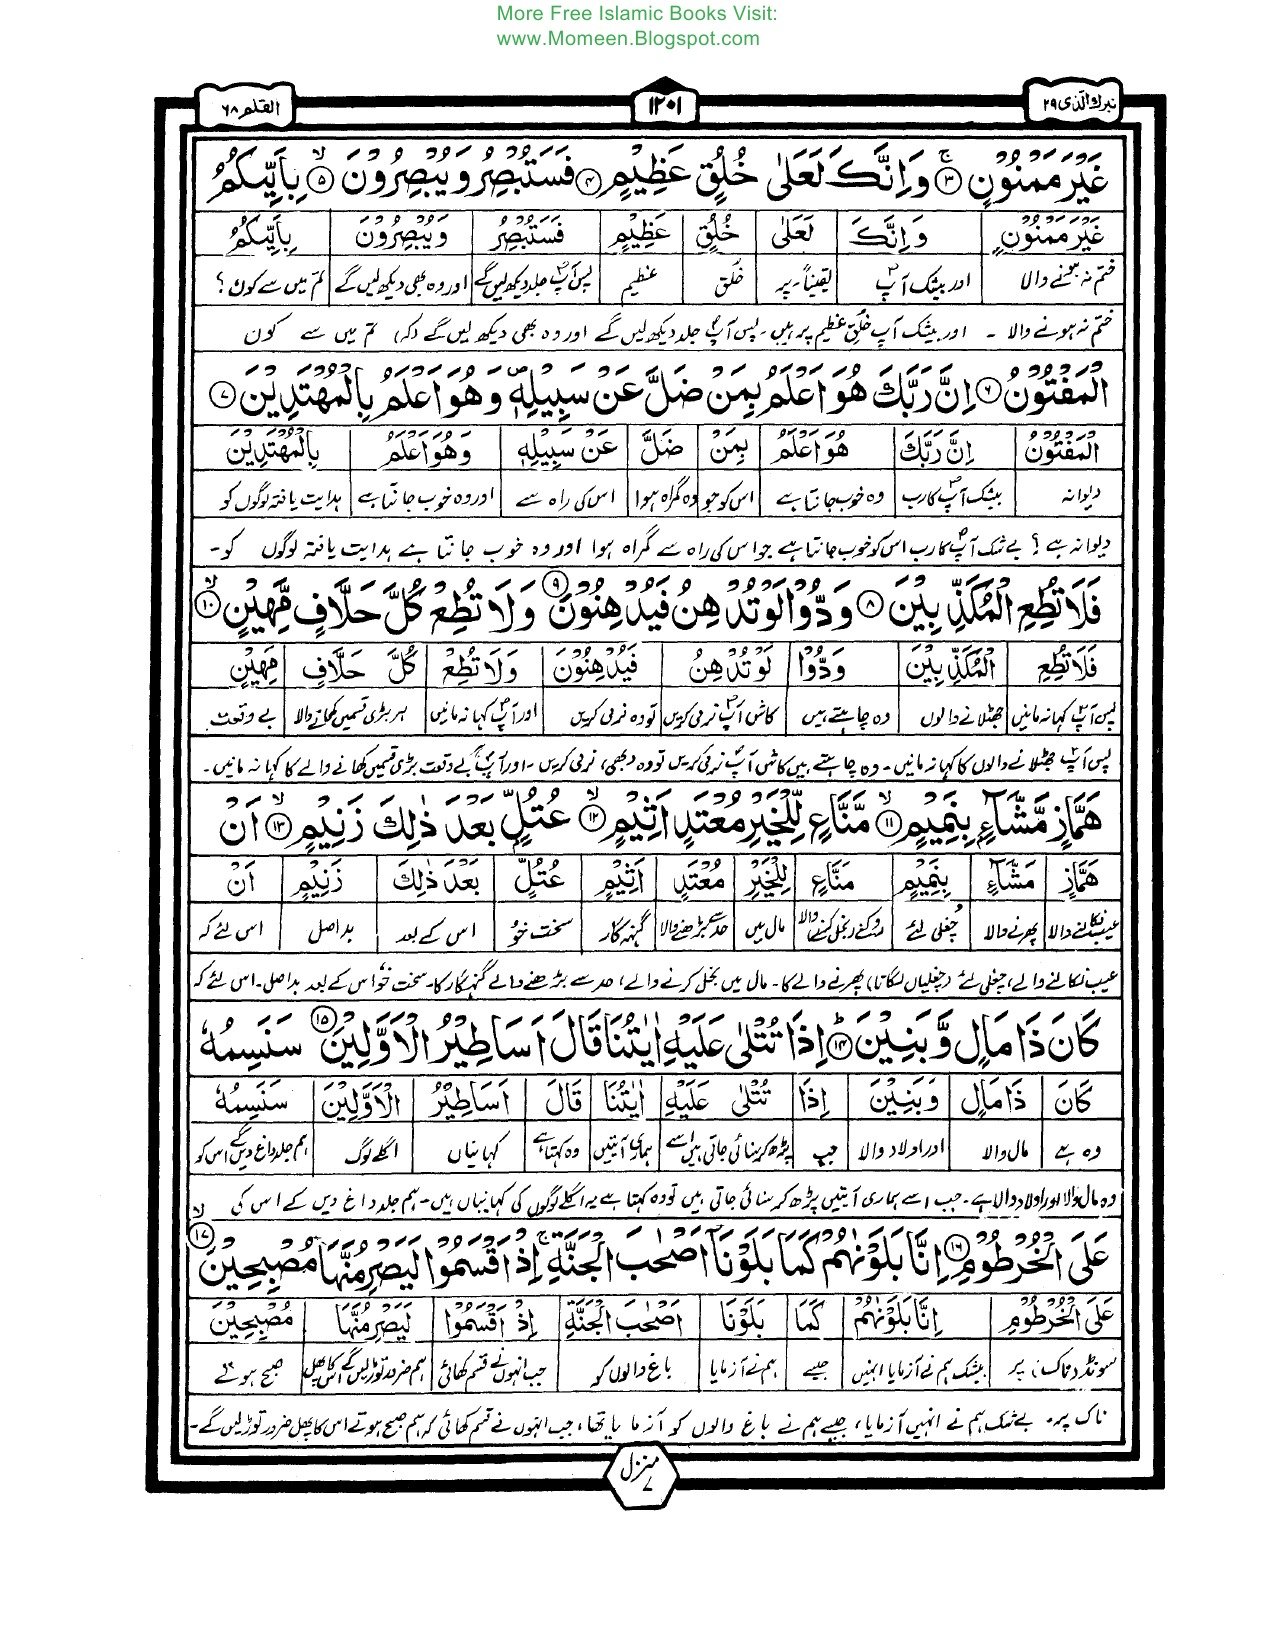 More Free Islamic Books Visit:
www.Momeen.Blogspot.com
تبرك الذی ۲۹
۱۲۰۱
القلم ۶۸
غَيْرَ مَمْنُوْنٍ ۳ وَاِنَّكَ لَعَلٰى خُلُقٍ عَظِيْمٍ ۴ فَسَتُبْصِرُ وَيُبْصِرُوْنَ ۵ بِاَيِّيكُمُ
غَيْرَ مَمْنُوْنٍ وَاِنَّكَ لَعَلٰى خُلُقٍ عَظِيْمٍ فَسَتُبْصِرُ وَيُبْصِرُوْنَ بِاَيِّيكُمُ
ختم نہ ہونے والا اور بیشک آپ یقیناً۔ پر خُلق عظیم پس آپ جلد دیکھ لیں گے اور وہ بھی دیکھ لیں گے تم میں سے کون؟
ختم نہ ہونے والا ۔ اور بیشک آپ خُلقِ عظیم پر ہیں۔ پس آپ جلد دیکھ لیں گے اور وہ بھی دیکھ لیں گے (کہ) تم میں سے کون
الْمَفْتُوْنُ ۶ اِنَّ رَبَّكَ هُوَ اَعْلَمُ بِمَنْ ضَلَّ عَنْ سَبِيْلِهٖ وَهُوَ اَعْلَمُ بِالْمُهْتَدِيْنَ ۷
الْمَفْتُوْنُ اِنَّ رَبَّكَ هُوَ اَعْلَمُ بِمَنْ ضَلَّ عَنْ سَبِيْلِهٖ وَهُوَ اَعْلَمُ بِالْمُهْتَدِيْنَ
دیوانہ بیشک آپ کا رب وہ خوب جانتا ہے اس کو جو وہ گمراہ ہوا اس کی راہ سے اور وہ خوب جانتا ہے ہدایت یافتہ لوگوں کو
دیوانہ ہے؟ بے شک آپ کا رب اس کو خوب جانتا ہے جو اس کی راہ سے گمراہ ہوا اور وہ خوب جانتا ہے ہدایت یافتہ لوگوں کو۔
فَلَا تُطِعِ الْمُكَذِّبِيْنَ ۸ وَدُّوْا لَوْ تُدْهِنُ فَيُدْهِنُوْنَ ۹ وَلَا تُطِعْ كُلَّ حَلَّافٍ مَّهِيْنٍ ۱۰
فَلَا تُطِعِ الْمُكَذِّبِيْنَ وَدُّوْا لَوْ تُدْهِنُ فَيُدْهِنُوْنَ وَلَا تُطِعْ كُلَّ حَلَّافٍ مَهِيْنٍ
پس آپ کہا نہ مانیں جھٹلانے والوں وہ چاہتے ہیں کاش آپ نرمی کریں تو وہ نرمی کریں اور آپ کہا نہ مانیں ہر بڑی قسمیں کھانے والا بے وقعت
پس آپ جھٹلانے والوں کا کہا نہ مانیں۔ وہ چاہتے ہیں کاش آپ نرمی کریں تو وہ (بھی) نرمی کریں۔ اور آپ بے وقعت بڑی قسمیں کھانے والے کا کہا نہ مانیں۔
هَمَّازٍ مَّشَّآءٍۢ بِنَمِيْمٍ ۱۱ مَّنَّاعٍ لِّلْخَيْرِ مُعْتَدٍ اَثِيْمٍ ۱۲ عُتُلٍّۢ بَعْدَ ذٰلِكَ زَنِيْمٍ ۱۳ اَنْ
هَمَّازٍ مَشَّآءٍ بِنَمِيْمٍ مَنَّاعٍ لِلْخَيْرِ مُعْتَدٍ اَثِيْمٍ عُتُلٍّ بَعْدَ ذٰلِكَ زَنِيْمٍ اَنْ
عیب نکالنے والا پھرنے والا چغلی لئے روکنے (بخل کرنے) والا مال میں حد سے بڑھنے والا گنہگار سخت خو اس کے بعد بد اصل اس لئے کہ
عیب نکالنے والے، چغلی لئے (چغلیاں لگاتا) پھرنے والے کا۔ مال میں بخل کرنے والے، حد سے بڑھنے والے گنہگار کا۔ سخت خو، اس کے بعد بد اصل۔ اس لئے کہ
كَانَ ذَا مَالٍ وَّبَنِيْنَ ۱۴ اِذَا تُتْلٰى عَلَيْهِ اٰيٰتُنَا قَالَ اَسَاطِيْرُ الْاَوَّلِيْنَ ۱۵ سَنَسِمُهٗ
كَانَ ذَا مَالٍ وَبَنِيْنَ اِذَا تُتْلٰى عَلَيْهِ اٰيٰتُنَا قَالَ اَسَاطِيْرُ الْاَوَّلِيْنَ سَنَسِمُهٗ
وہ ہے مال والا اور اولاد والا جب پڑھ کر سنائی جاتی ہیں اسے ہماری آیتیں وہ کہتا ہے کہانیاں اگلے لوگ ہم جلد داغ دیں گے اس کو
وہ مال والا اور اولاد والا ہے۔ جب اسے ہماری آیتیں پڑھ کر سنائی جاتی ہیں تو وہ کہتا ہے یہ اگلے لوگوں کی کہانیاں ہیں۔ ہم جلد داغ دیں گے اس کی
عَلَى الْخُرْطُوْمِ ۱۶ اِنَّا بَلَوْنٰهُمْ كَمَا بَلَوْنَآ اَصْحٰبَ الْجَنَّةِ اِذْ اَقْسَمُوْا لَيَصْرِمُنَّهَا مُصْبِحِيْنَ ۱۷
عَلَى الْخُرْطُوْمِ اِنَّا بَلَوْنٰهُمْ كَمَا بَلَوْنَا اَصْحٰبَ الْجَنَّةِ اِذْ اَقْسَمُوْا لَيَصْرِمُنَّهَا مُصْبِحِيْنَ
سونڈ (ناک) پر بیشک ہم نے آزمایا انہیں جیسے ہم نے آزمایا باغ والوں کو جب انہوں نے قسم کھائی ہم ضرور توڑ لیں گے اس کا پھل صبح ہوتے
ناک پر۔ بے شک ہم نے انہیں آزمایا، جیسے ہم نے باغ والوں کو آزمایا تھا، جب انہوں نے قسم کھائی کہ ہم صبح ہوتے اس کا پھل ضرور توڑ لیں گے۔
منزل ۷